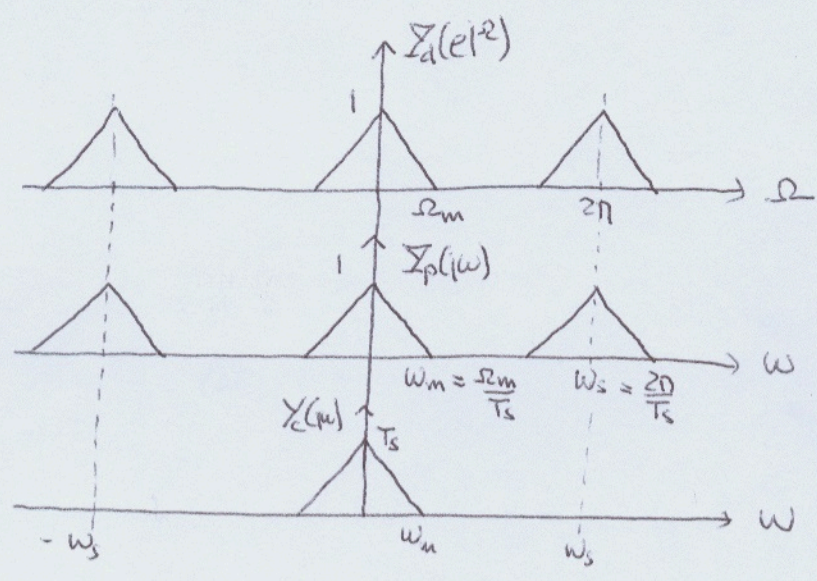 X_d(e^jΩ)
1
Ω_m 2π Ω
1 X_p(jω)
ω_m = Ω_m/T_s ω_s = 2π/T_s ω
Y_c(jω) T_s
-ω_s ω_m ω_s ω